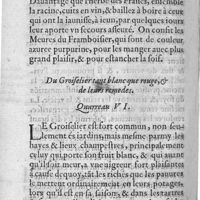 Davantage que l'herbe des Prares, ensemble la
racine, cuits en vin, & baillez à boire à ceux
qui ont la jaunisse, à jeun, par quelques jours
leur aporte un secours asseuré. On confit les
Meures du Framboisier, qui sont de couleur
azurée purpurine, pour les manger avec plus
grand plaisir, & pour estancher la soif.
Du Groiselier tant blanc que rouge, &
de leurs remedes.
Quarreau VI.
LE Groiselier est fort commun, non seu-
lement és jardins, mais mesme parmy les
hayes & lieux champestres, principalement
celuy qui porte son fruit blanc, & qui a auant
qu'il soit meur, une aigreur, fort plaisante
à cause de quoy, tât les riches que les pauvres
le mettent ordinairement en leurs potages,
lors qu'il est en sa saison, & dans les autres